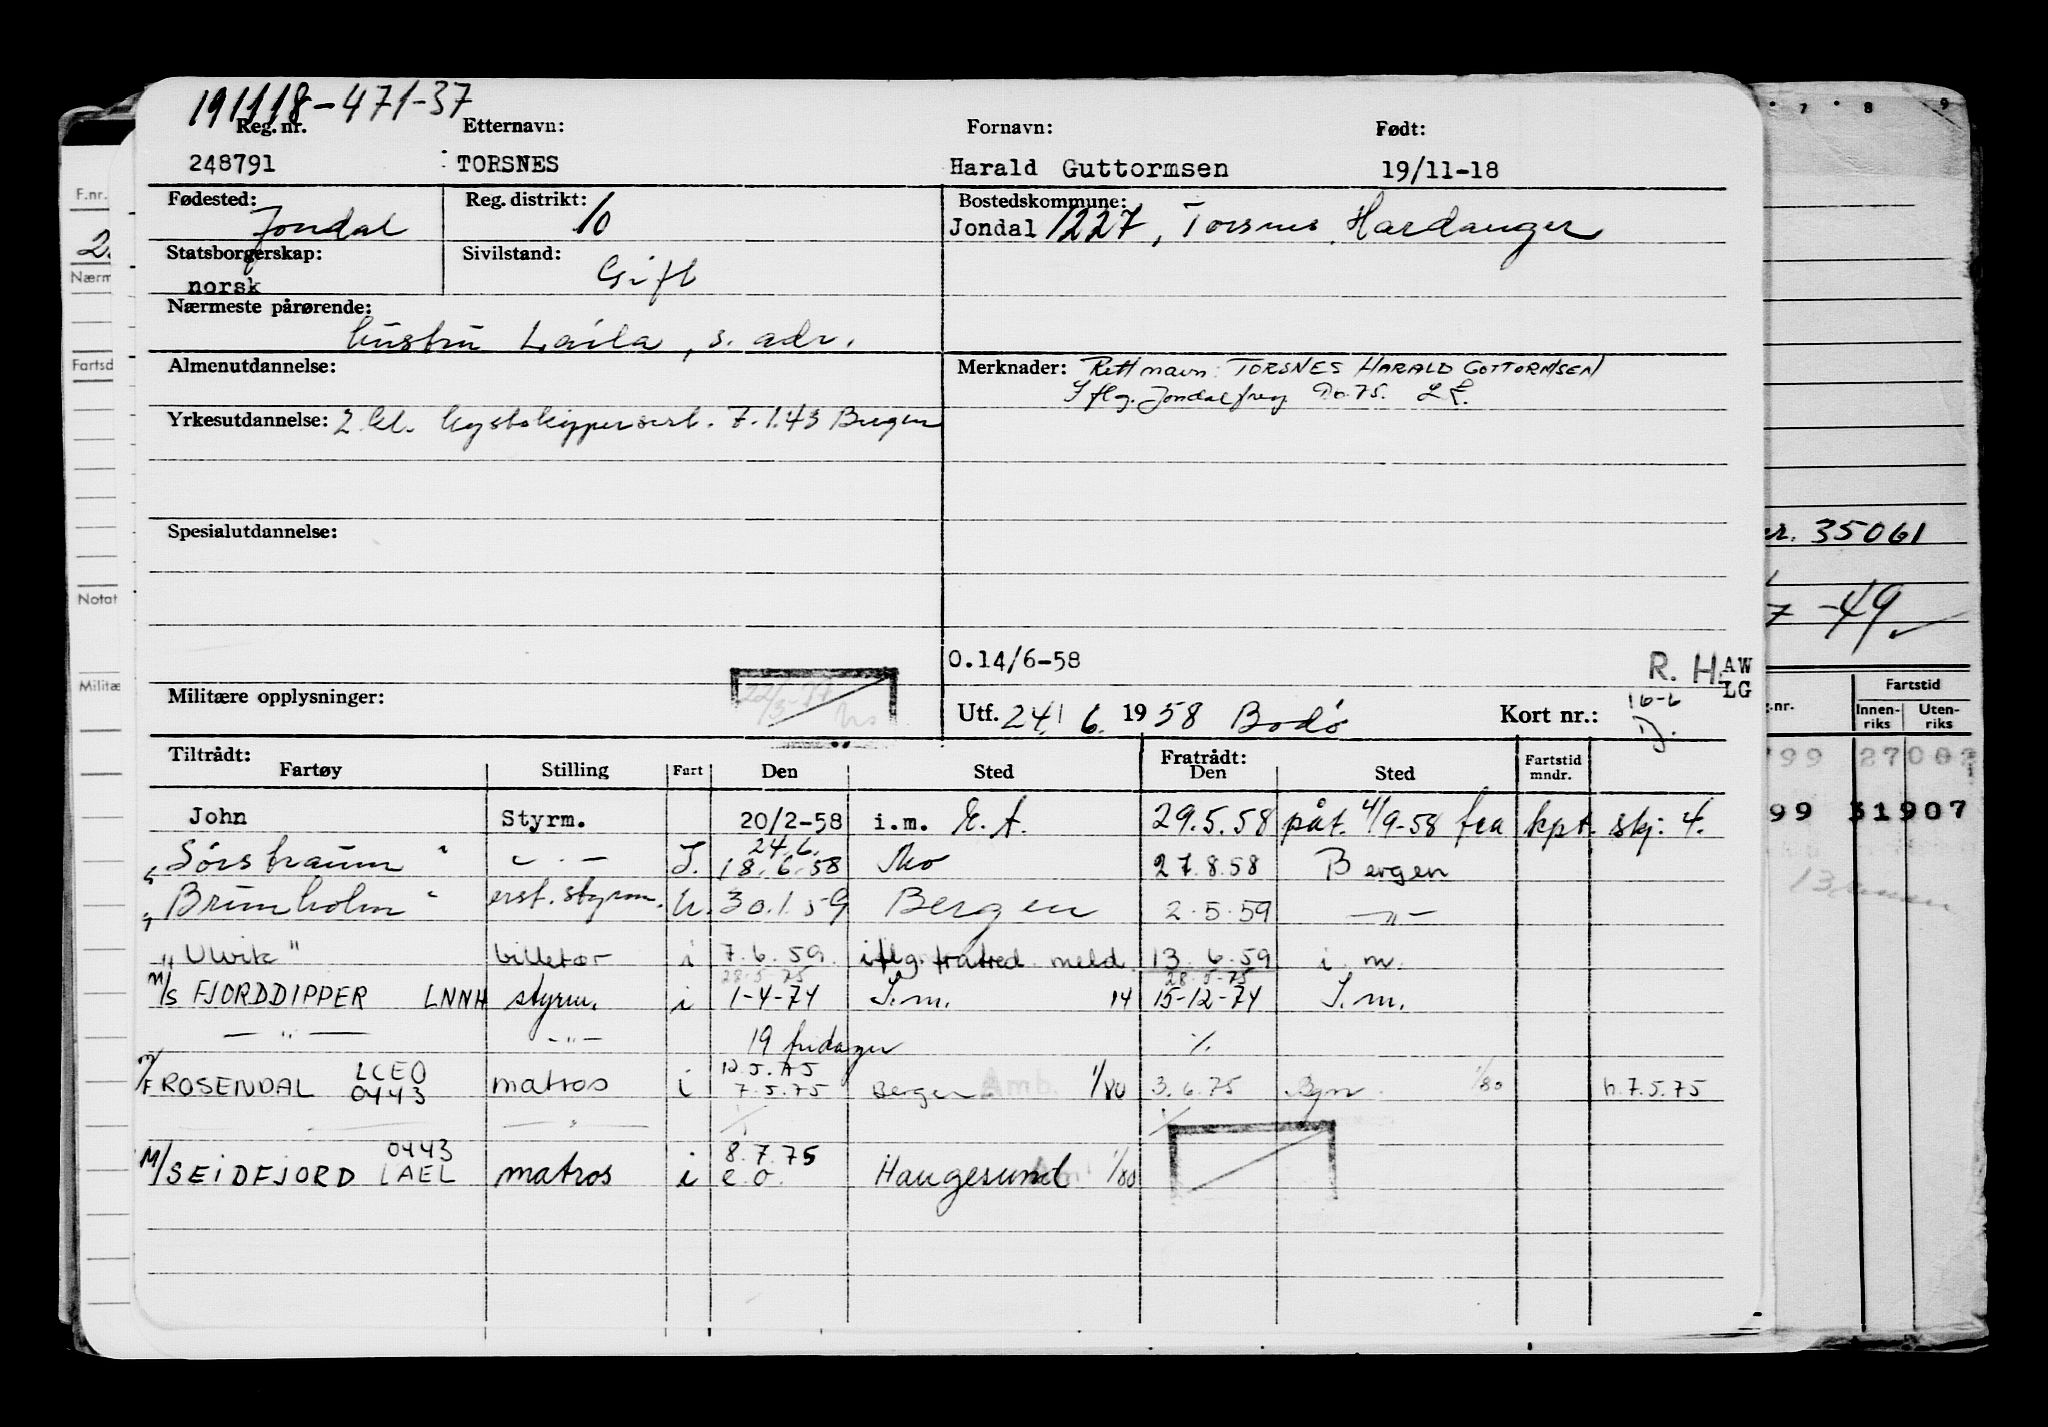 191118-471-37
Reg. nr. Etternavn: Fornavn: Født:
248791 TORSNES Harald Guttormsen 19/11-18
Fødested: Reg. distrikt: Bostedskommune:
Jondal 10 Jondal 1227, Torsnes, Hardanger
Statsborgerskap: Sivilstand:
norsk Gift
Nærmeste pårørende:
hustru Laila, s. adr.
Almenutdannelse: Merknader: Rett navn: TORSNES HARALD GOTTORMSEN
I flg. Jondal freg Do. 75.
Yrkesutdannelse: 2. kl. kystskippersert. 7.1.43 Bergen
Spesialutdannelse:
O.14/6-58
R. H. AW
LG
Militære opplysninger: Utf. 24/6. 1958 Bodø Kort nr.: 16-6
Tiltrådt: Fratrådt:
Fartøy Stilling Fart Den Sted Den Sted Fartstid mndr.
John Styrm. 20/2-58 i.m. E.A. 29.5.58 påt. 4/9-58 fra kpt. skj. 4.
24.6.
"Sørstraum" - " - I. 18.6.58 Mo 27.8.58 Bergen
"Brimholm" erst. styrm. U. 30.1.59 Bergen 2.5.59 - " -
"Ulvik" billetør i 7.6.59. iflg. fratred. meld. 13.6.59 i.m.
28.5.75 28.5.75
M/S FJORDDIPPER LNNH styrm. i 1-4-74 I.m. 14 15-12-74 I.m.
- " - - " - 19 fridager %
LCEO 12.5.75
M/F ROSENDAL 0443 matros i 7.5.75 Bergen 1/80 3.6.75 Bgn 1/80 h.7.5.75
- " -
0443 8.7.75
M/S SEIDFJORD LAEL matros i e.o. Haugesund 1/80
F.nr.
2.
Nærm
Fartsd
Notat
Militæ
7 8 9
nr. 35061
7 -49
Fartstid
g.nr. Innen-riks Uten-riks
99 27002
99 31907